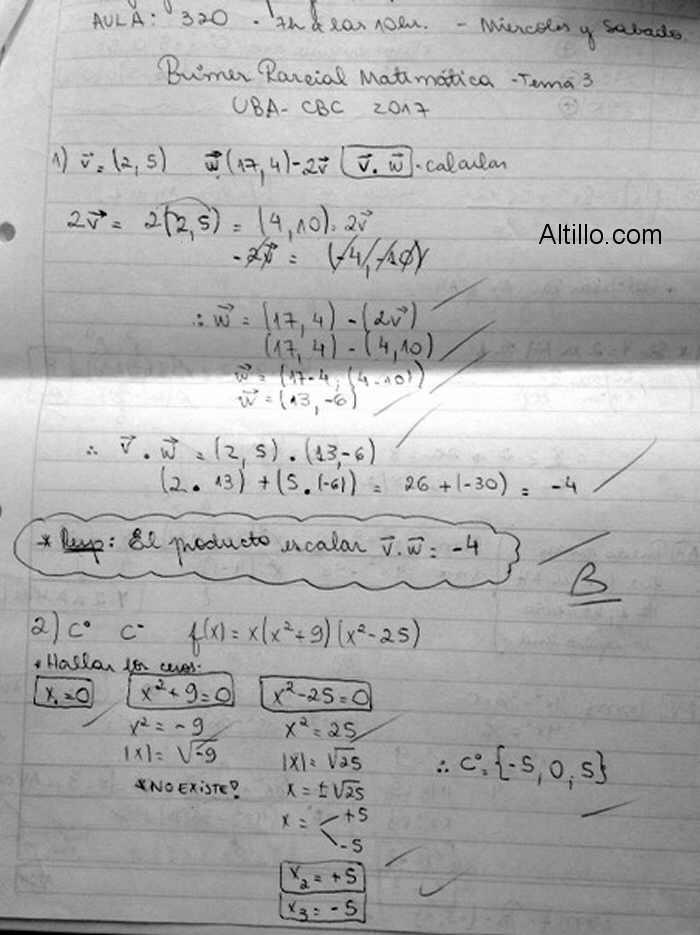 AULA: 320 - 7h a las 10hs. - Miercoles y Sabado.
Primer Parcial Matemática - Tema 3
UBA - CBC 2017
1) v⃗ = (2, 5) w⃗ (17, 4) - 2v⃗ v⃗ . w⃗ - calcular
2v⃗ = 2(2, 5) = (4, 10) = 2v⃗
- 2v⃗ = (-4, -10)
Altillo.com
∴ w⃗ = (17, 4) - (2v⃗)
(17, 4) - (4, 10)
w⃗ = (17-4; (4-10))
w⃗ = (13, -6)
∴ v⃗ . w⃗ = (2, 5) . (13, -6)
(2 . 13) + (5 . (-6)) = 26 + (-30) = -4
* Resp: El producto escalar v⃗ . w⃗ = -4
B
2) C° C⁻ f(x) = x(x²+9) (x²-25)
* Hallar los ceros:
x₁=0 x²+9=0 x²-25=0
x² = -9 x² = 25
|x| = √-9 |x| = √25
* NO EXISTE? x = ±√25
∴ C° = {-5, 0, 5}
x = +5
-5
x₂ = +5
x₃ = -5